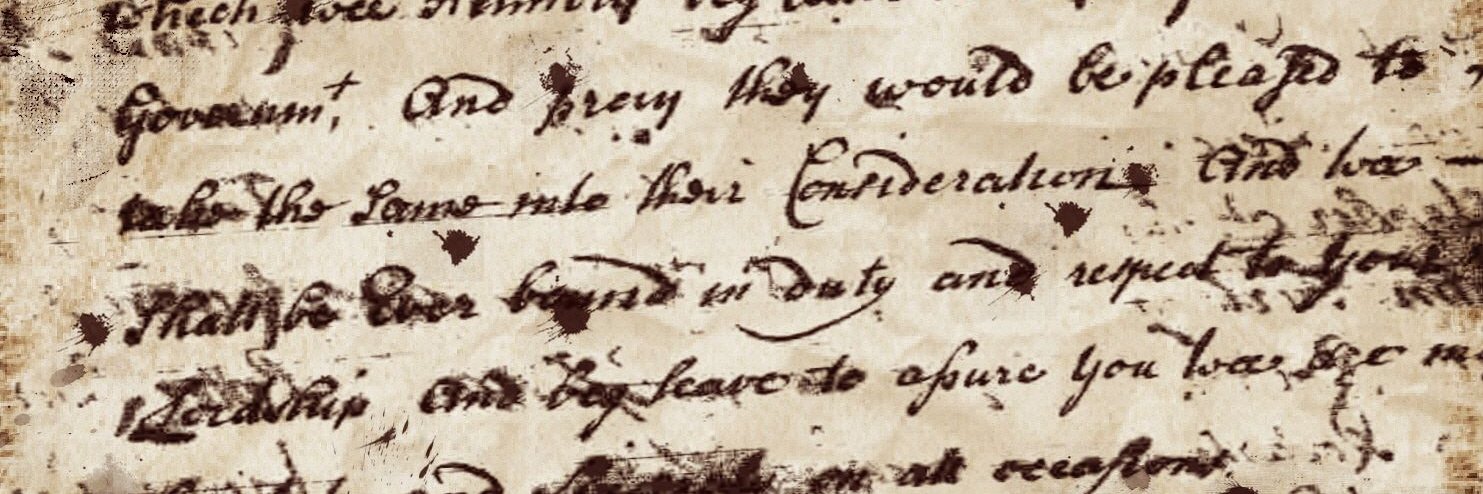 which wee Humbly beg leave
Governmt, And pray they would be pleased to
take the Same into their Consideration And wee
Shall be Ever bound in duty and respect to Your
Lordship and beg leave to assure You wee are
on all occasions